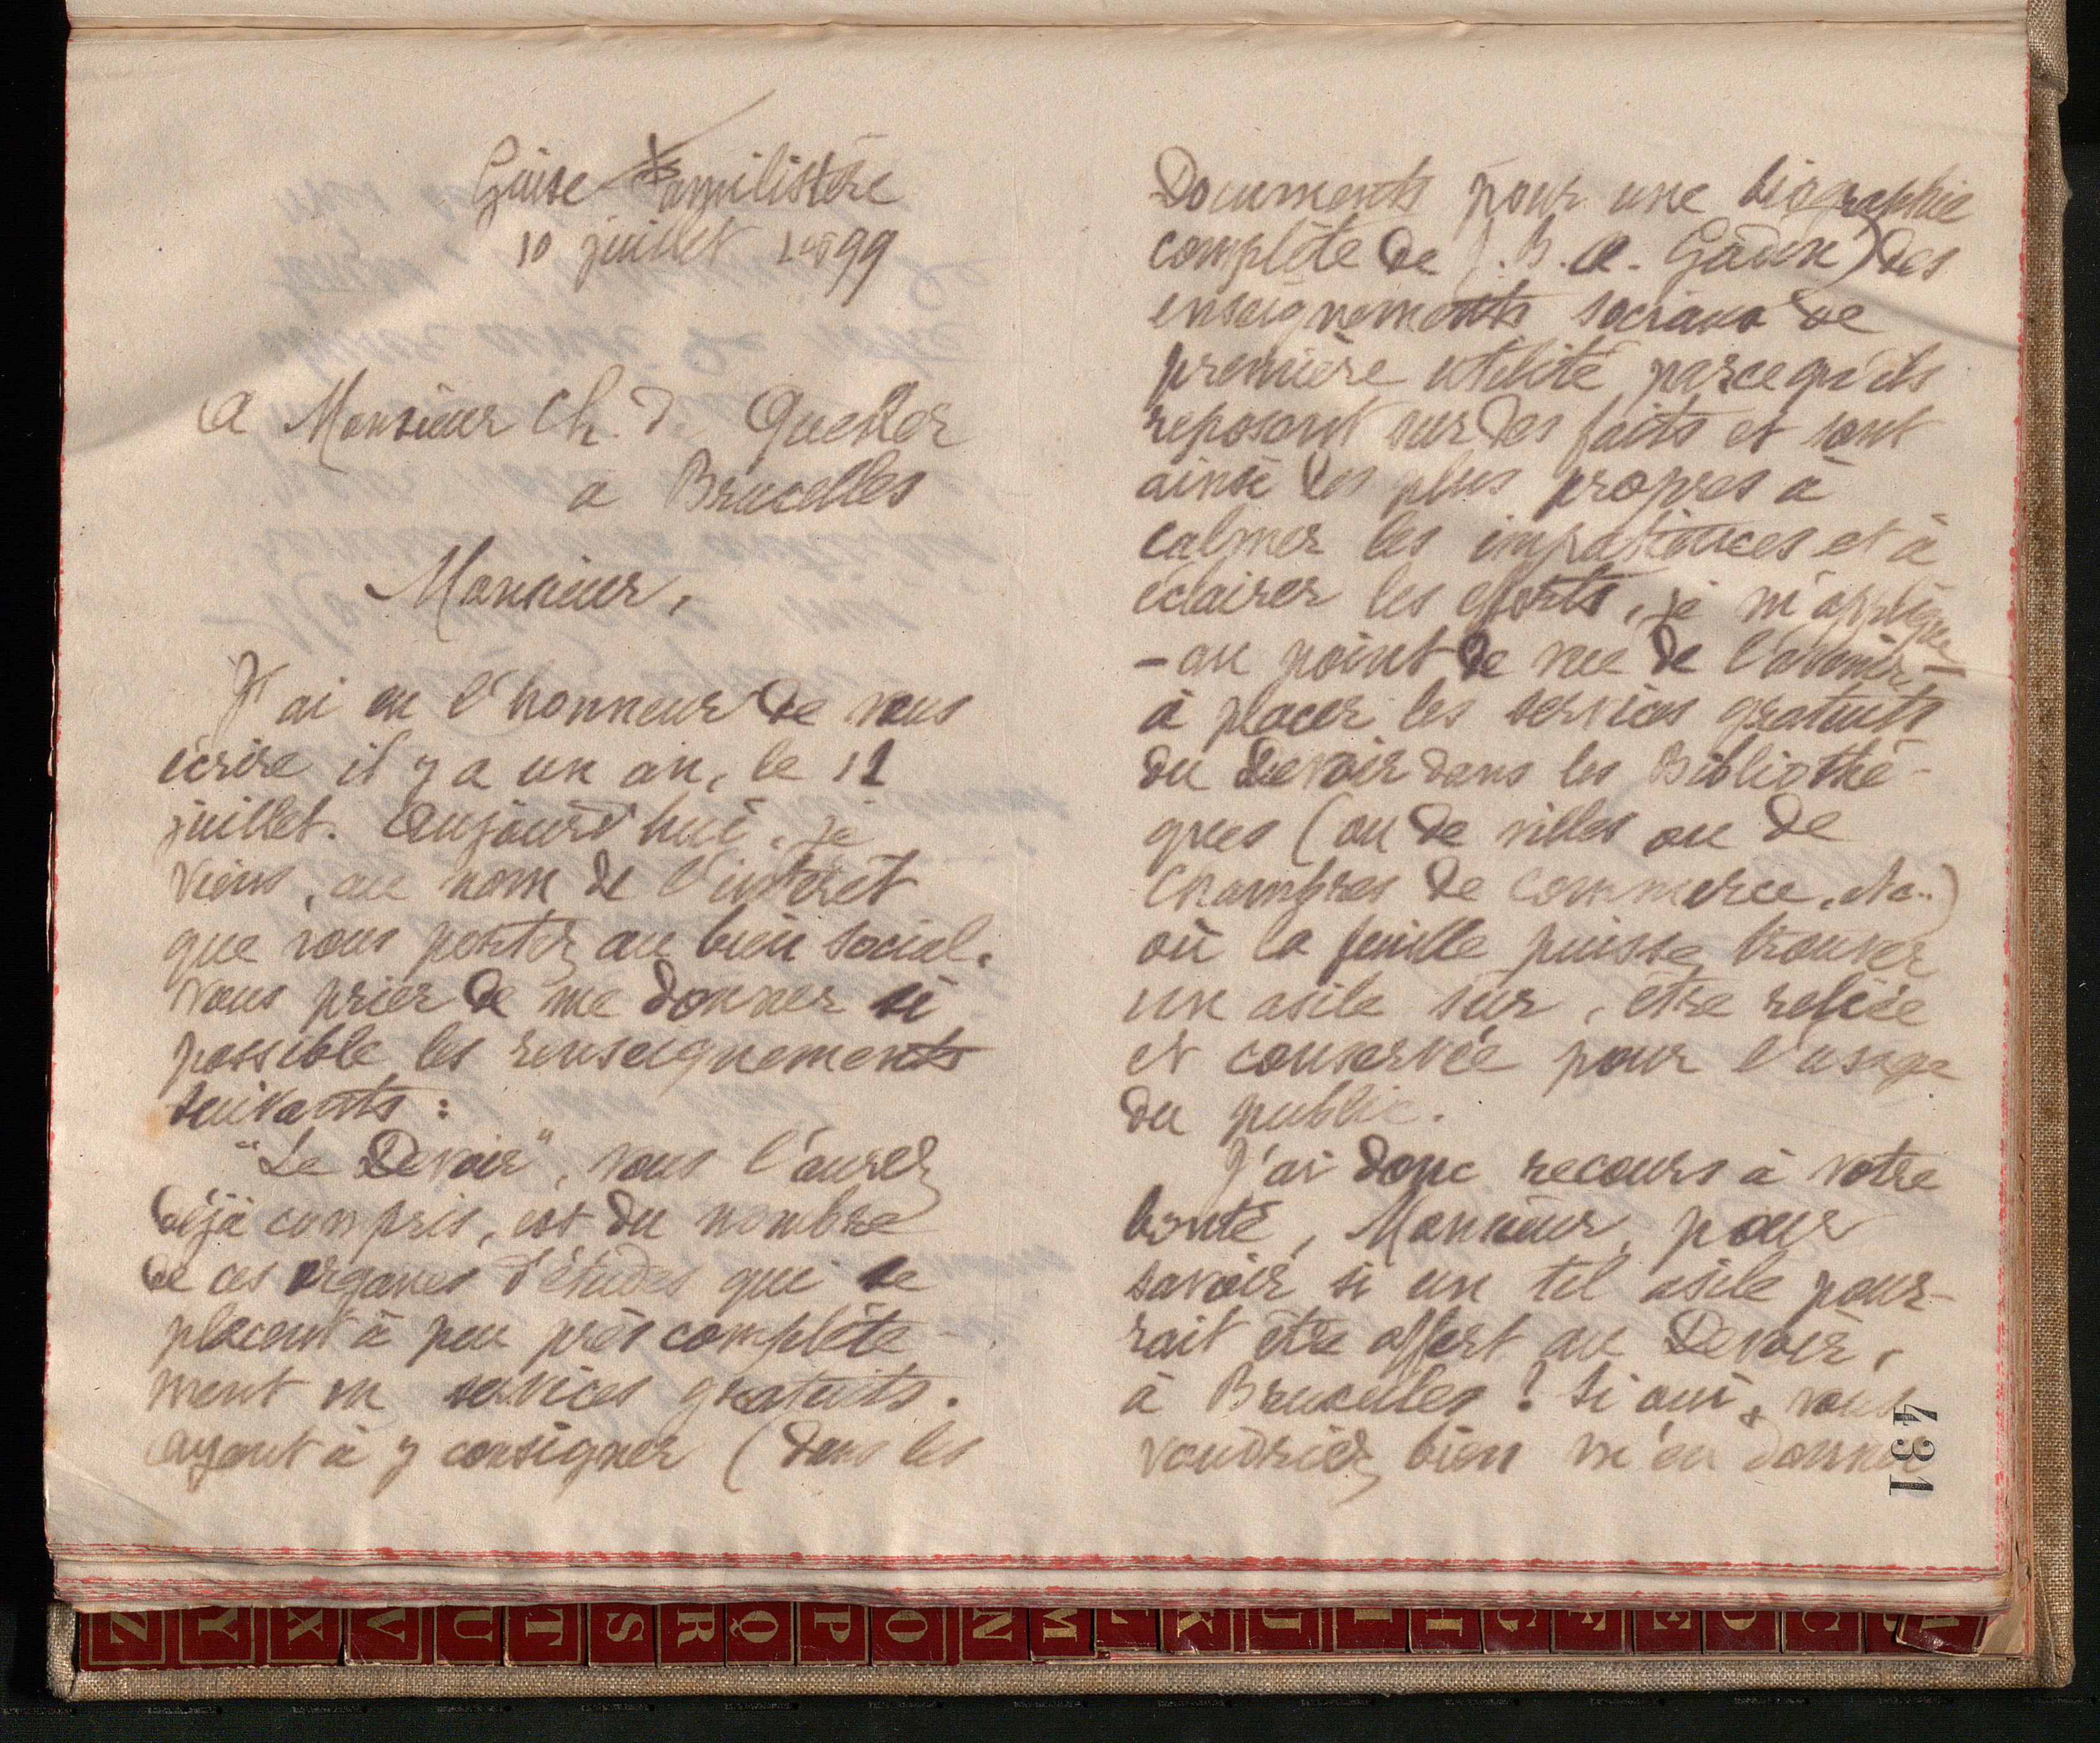 Guise Familistère
10 juillet 1899
A Monsieur Ch. D. Quéker
a Bruxelles
Monsieur,
J'ai eu l'honneur de vous
écrire il y a un an, le 11
juillet. Aujourd'hui, je
viens, au nom de l'intérêt
que vous portez au bien social,
vous prier de me donner si
possible les renseignements
suivants :
"Le Devoir", vous l'aurez
déjà compris, est du nombre
de ces organes d'études qui se
placent à peu près complète-
ment en services gratuits.
ayant à y consigner (dans les
Documents pour une biographie
complète de J. B. A. Godin) des
enseignements sociaux de
première utilité parcequ'ils
reposent sur des faits et sont
ainsi les plus propres à
calmer les impatiences et à
éclairer les efforts, je m'applique
- au point de vue de l'avenir -
à placer les services gratuits
du Devoir dans les Bibliothè-
ques (ou de villes ou de
Chambres de commerce, etc..)
où la feuille puisse trouver
un asile sûr, être reliée
et conservée pour l'usage
du public.
J'ai donc recours à votre
bonté, Monsieur, pour
savoir si un tel asile pour-
rait être offert au Devoir,
à Bruxelles ? Si oui, vous
voudriez bien m'en donner
431
Z Y X V U T S R Q P O N M L K J I H G F E D C B A